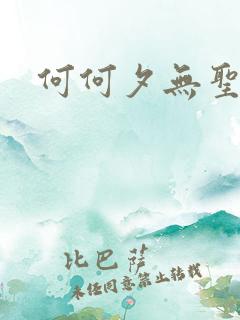 何何夕無聖
比巴薩
未经同意禁止转载